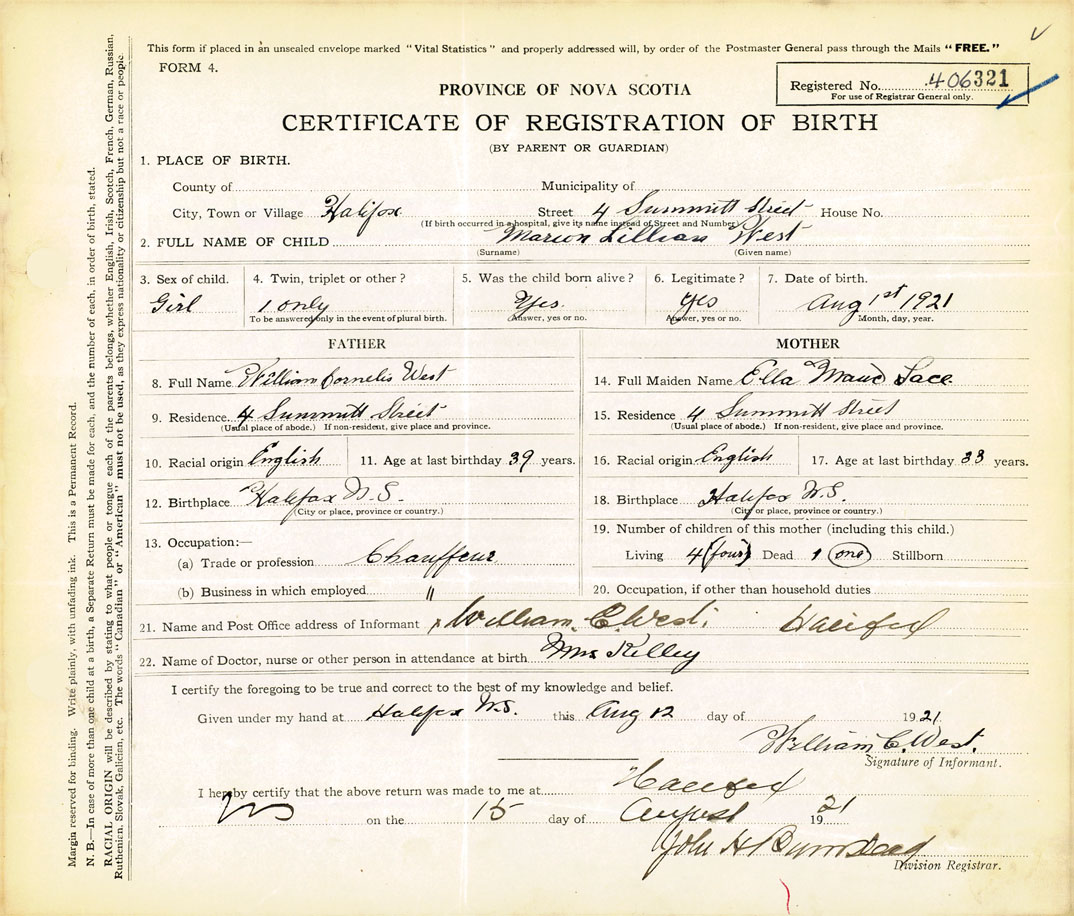 This form if placed in an unsealed envelope marked "Vital Statistics" and properly addressed will, by order of the Postmaster General pass through the Mails "FREE."
FORM 4.
Registered No. 406321
For use of Registrar General only.
PROVINCE OF NOVA SCOTIA
CERTIFICATE OF REGISTRATION OF BIRTH
(BY PARENT OR GUARDIAN)
1. PLACE OF BIRTH.
County of Municipality of
City, Town or Village Halifax Street 4 Summitt Street House No.
(If birth occurred in a hospital, give its name instead of Street and Number)
2. FULL NAME OF CHILD Marion Lillian West
(Surname) (Given name)
3. Sex of child. 4. Twin, triplet or other? 5. Was the child born alive? 6. Legitimate? 7. Date of birth.
Girl 1 only Yes. yes Aug 1st 1921
To be answered only in the event of plural birth. Answer, yes or no. Answer, yes or no. Month, day, year.
FATHER
8. Full Name William Cornelis West
9. Residence 4 Summitt Street
(Usual place of abode.) If non-resident, give place and province.
10. Racial origin English 11. Age at last birthday 39 years.
12. Birthplace Halifax N.S.
(City or place, province or country.)
13. Occupation:—
(a) Trade or profession Chauffeur
(b) Business in which employed "
MOTHER
14. Full Maiden Name Ella Maud
15. Residence 4 Summitt Street
(Usual place of abode.) If non-resident, give place and province.
16. Racial origin English 17. Age at last birthday 33 years.
18. Birthplace Halifax N.S.
(City or place, province or country.)
19. Number of children of this mother (including this child.)
Living 4 (four) Dead 1 (one) Stillborn
20. Occupation, if other than household duties
21. Name and Post Office address of Informant William C. West. Halifax
22. Name of Doctor, nurse or other person in attendance at birth Mrs Kelley
I certify the foregoing to be true and correct to the best of my knowledge and belief.
Given under my hand at Halifax N.S. this Aug 12 day of 1921.
William C. West.
Signature of Informant.
I hereby certify that the above return was made to me at Halifax
NS on the 15 day of August 1921
John H
Division Registrar.
Margin reserved for binding. Write plainly, with unfading ink. This is a Permanent Record.
N. B.—In case of more than one child at a birth, a Separate Return must be made for each, and the number of each, in order of birth, stated.
RACIAL ORIGIN will be described by stating to what people or tongue each of the parents belongs, whether English, Irish, Scotch, French, German, Russian,
Ruthenian, Slovak, Galician, etc. The words "Canadian" or "American" must not be used, as they express nationality or citizenship but not a race or people